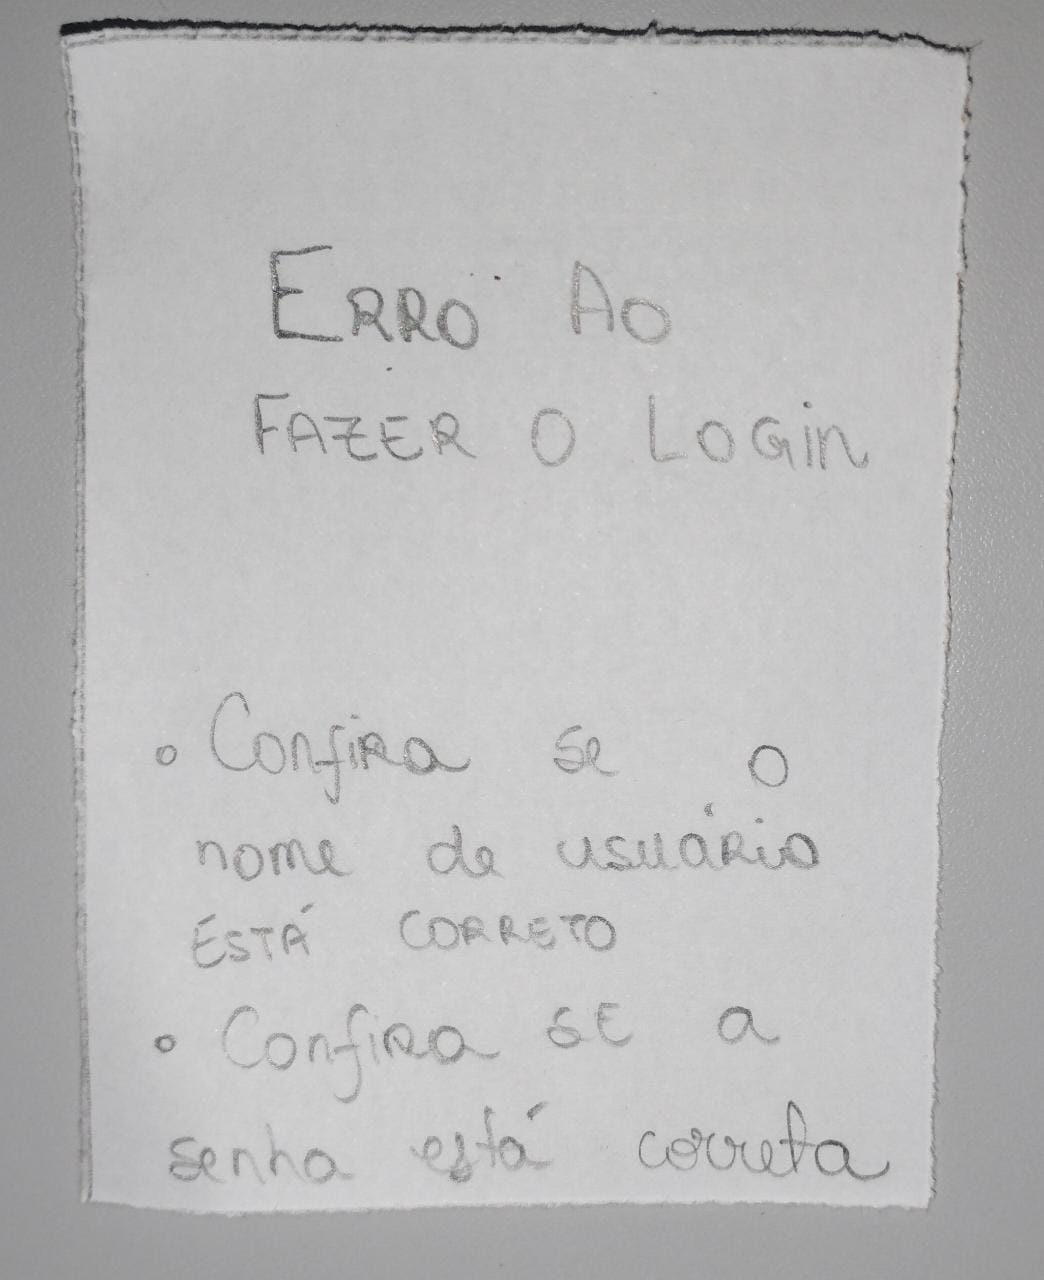 ERRO AO
FAZER O LOGin
• Confira se o
nome de usuário
ESTÁ CORRETO
• Confira SE a
senha está correta